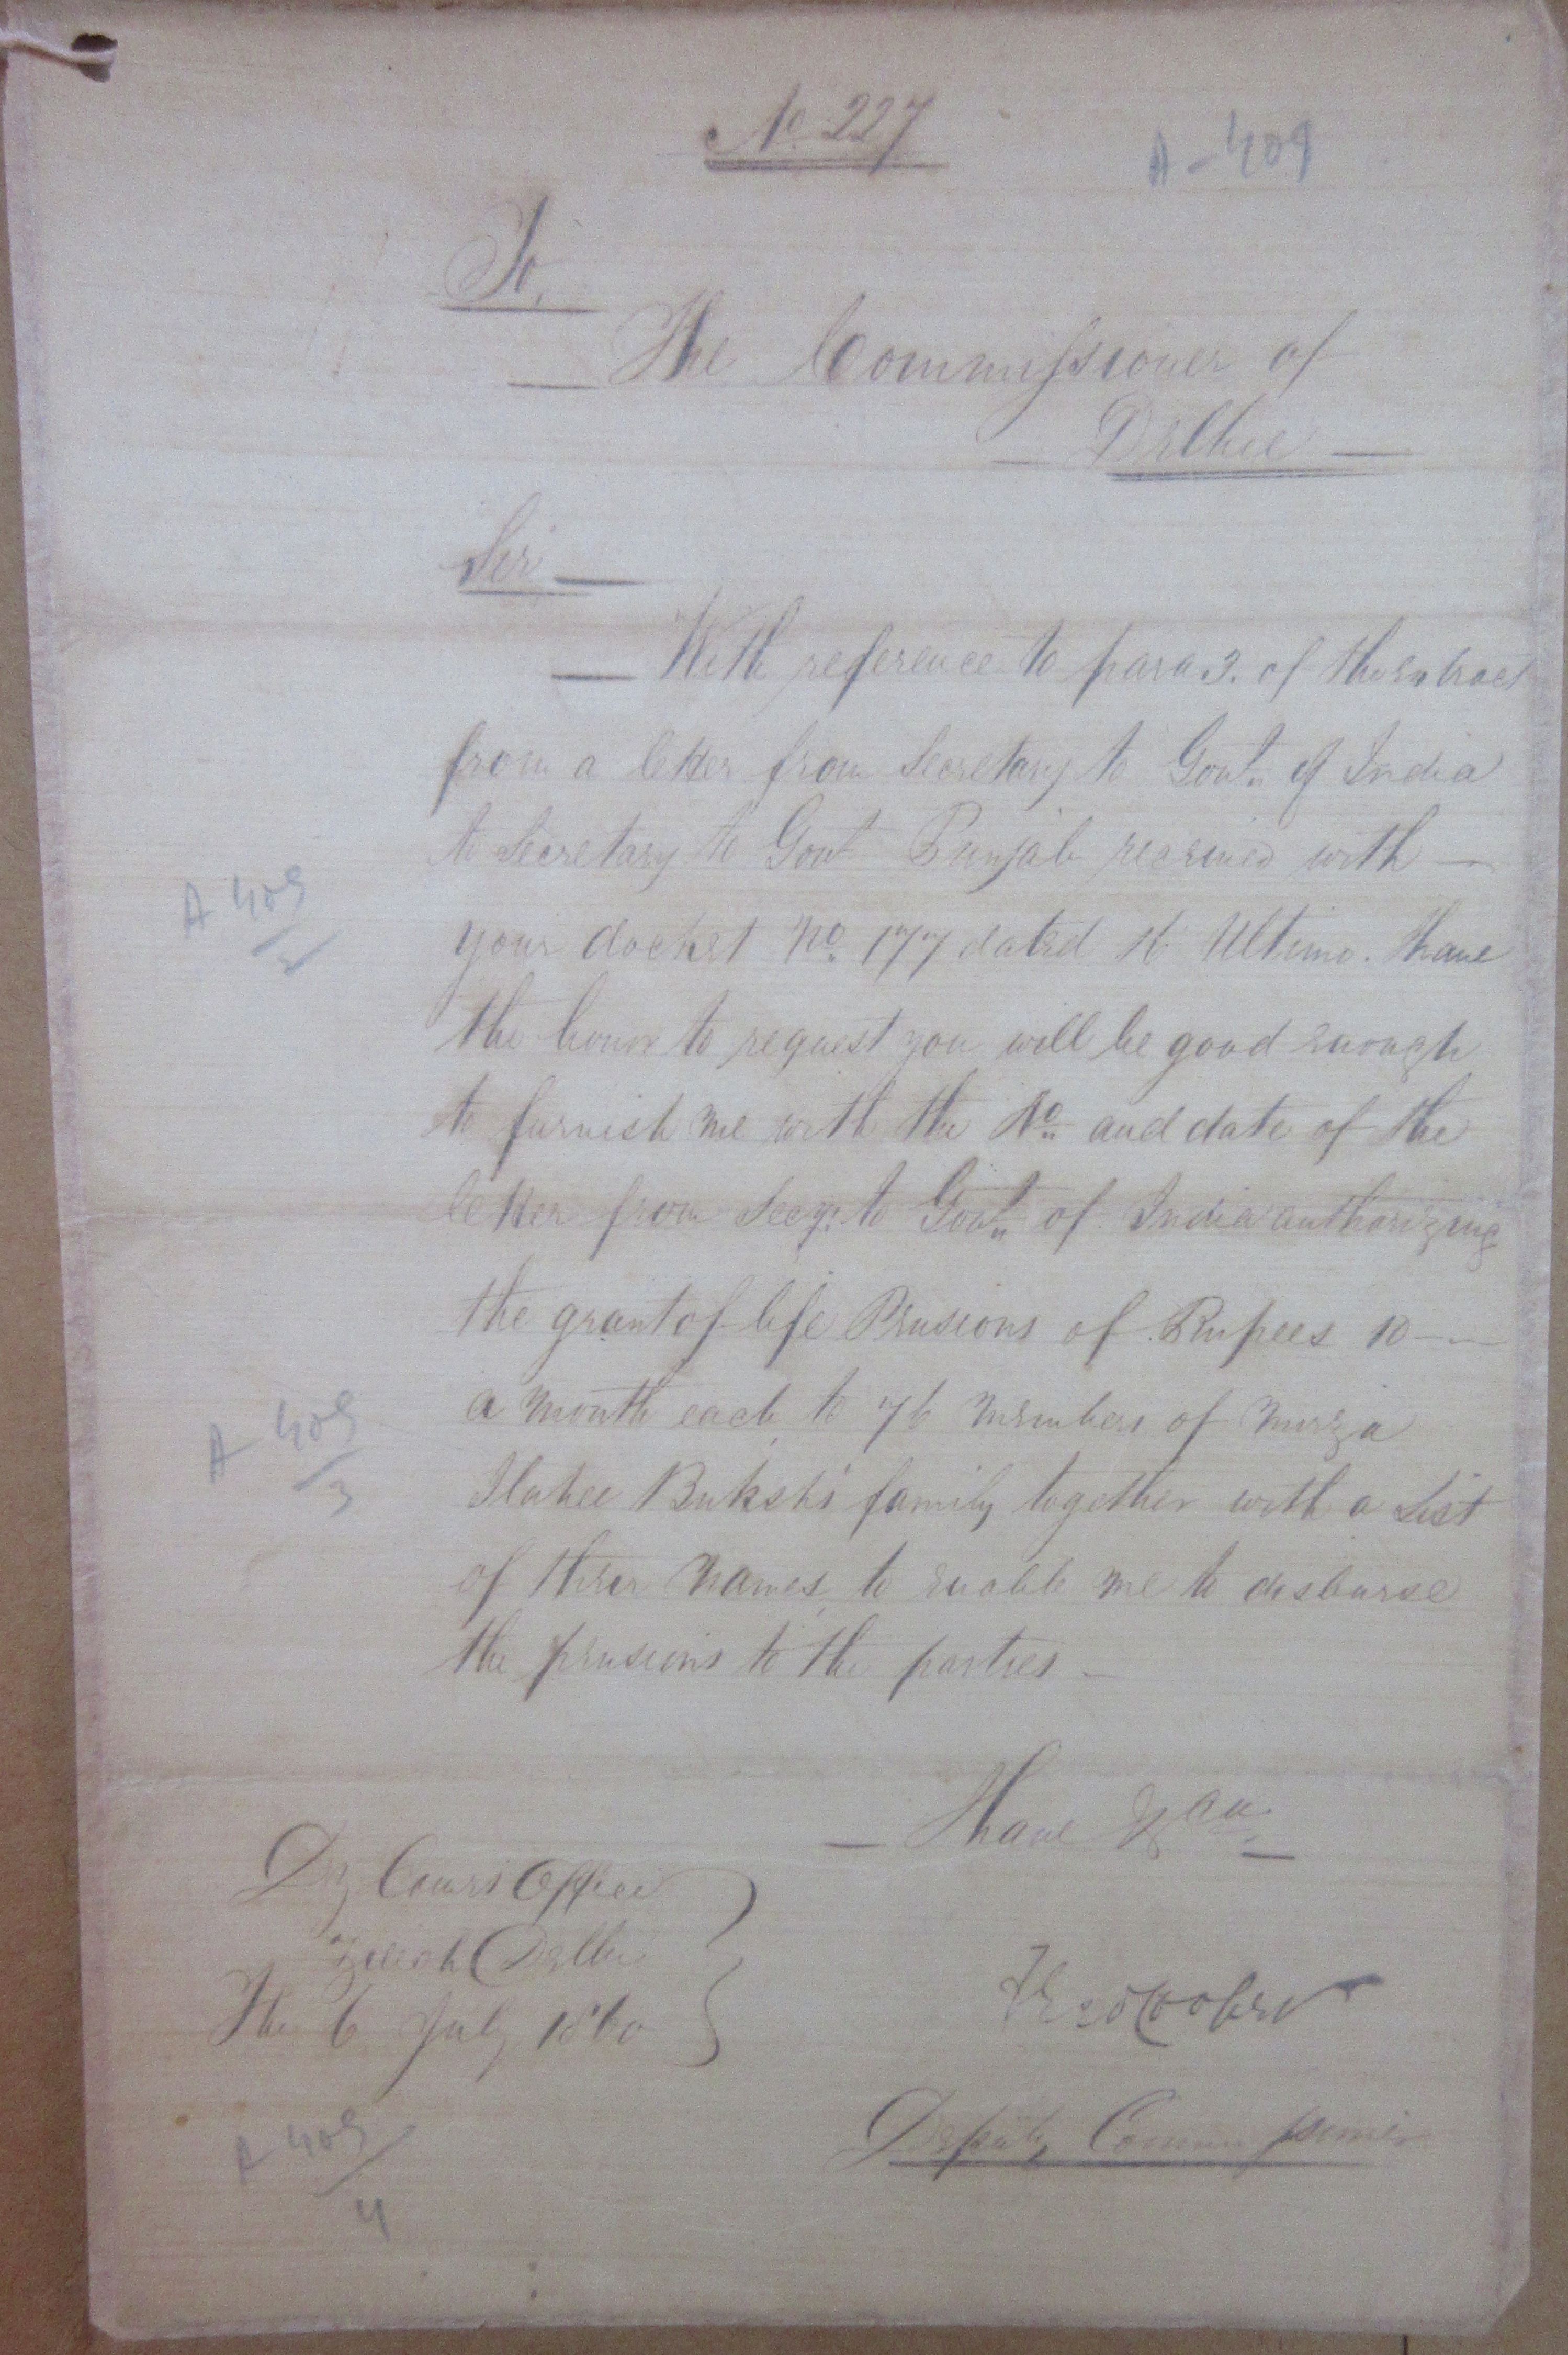 No. 227
A-409
To,
The Commissioner of
Delhie
Sir
With reference to para 3. of the extract
from a letter from Secretary to Govt. of India
to Secretary to Govt Punjab received with
your docket No. 177 dated 16 Ultimo. I have
A 409/2
the honor to request you will be good enough
to furnish me with the No. and date of the
letter from Secy: to Govt. of India authorizing
the grant of life Pensions of Rupees 10
a month each, to 76 members of Mirza
A 409/3
Ilahee Buksh's family together with a List
of their names, to enable me to disburse
the pensions to the parties
I have &ca.
Dy Comrs Office
Zillah Delhie
The 6 July 1860
Deputy Commissioner
A 409/4